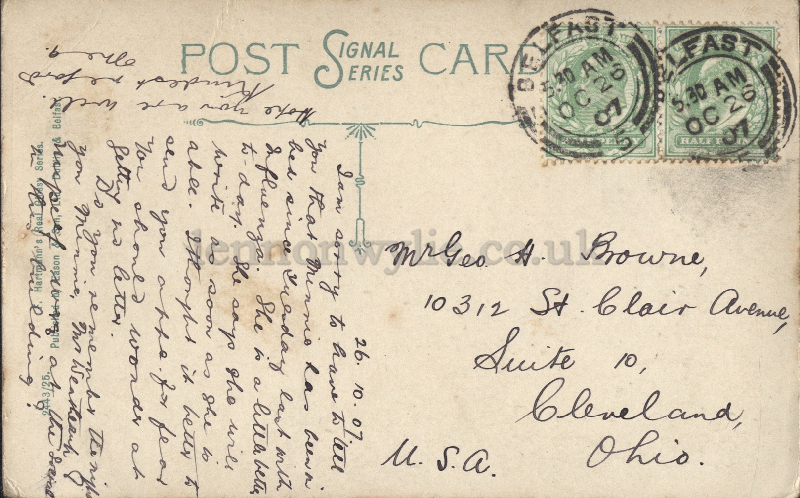 POST CARD
SIGNAL
SERIES
BELFAST
5.30 AM
OC 26
07
BELFAST
5.30 AM
OC 26
07
HALFPENNY
26.10.07
I am sorry to have to tell
you that Minnie has been in
bed since Tuesday last with
Influenza. She is a little better
to-day. She says she will
write as soon as she is
able. I thought it better to
send you a ppc for fear
you should wonder at
getting no letter.
Do you remember the night
you, Minnie, Mrs
& myself at the same
in this building?
Hope you are well.
Kindest regards
Mr Geo H. Browne,
10312 St. Clair Avenue,
Suite 10,
Cleveland,
Ohio.
U.S.A.
2443/25
F. Hartmann's Real Glossy Series.
Published by Eason & Son, Ltd., Dublin & Belfast
lennonwylie.co.uk